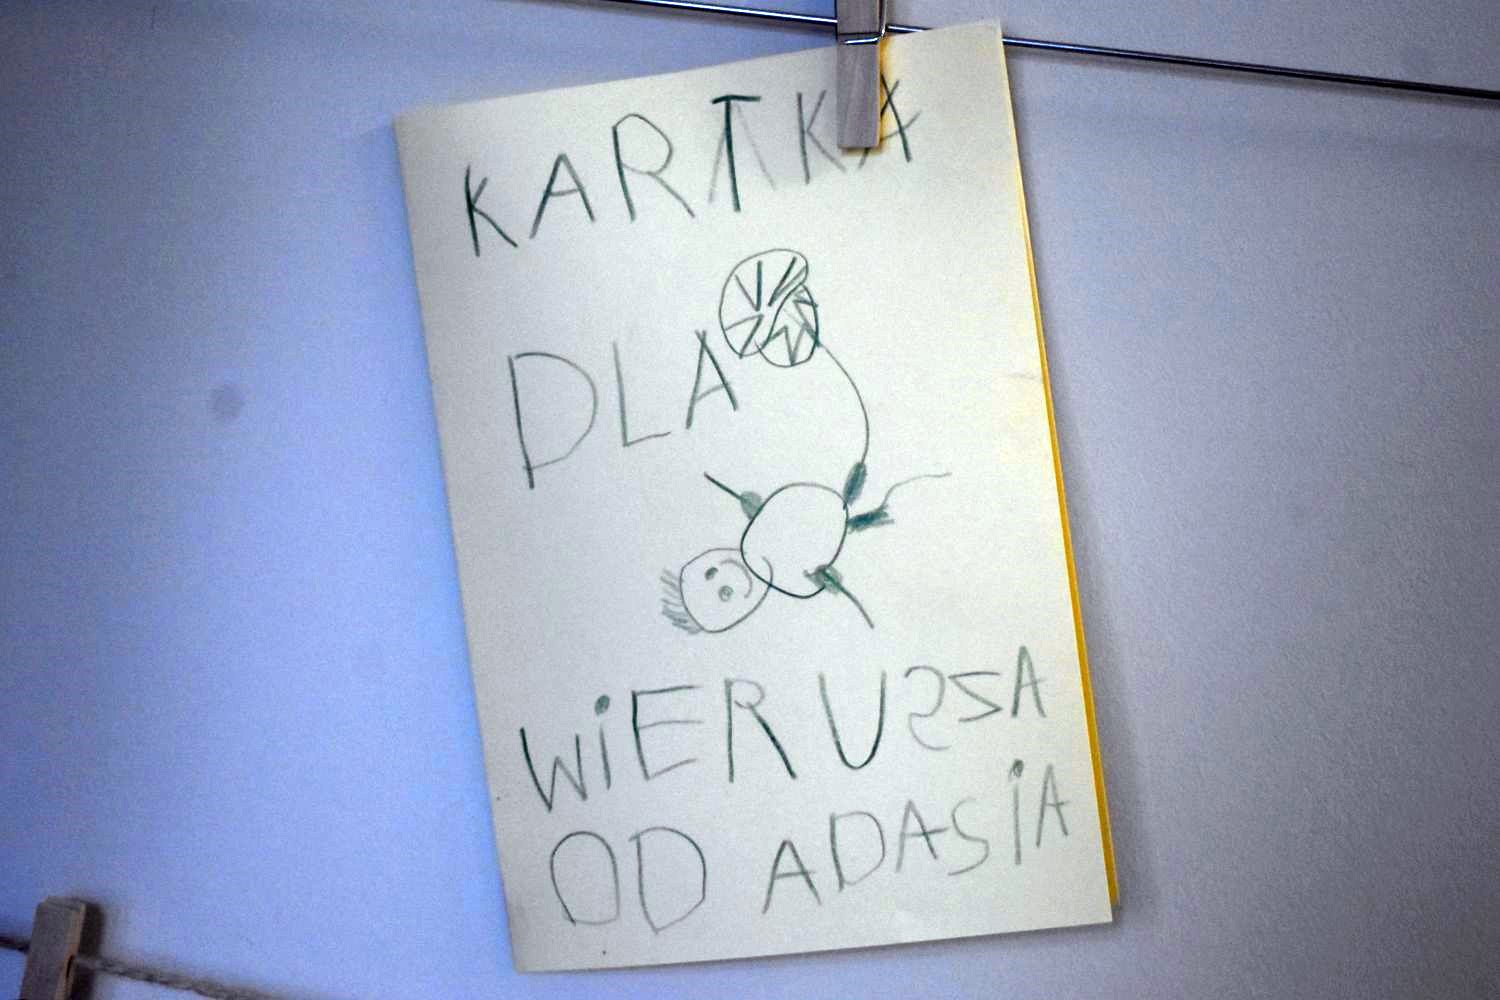 KARTKA
DLA
WiERUSZA
OD ADASiA